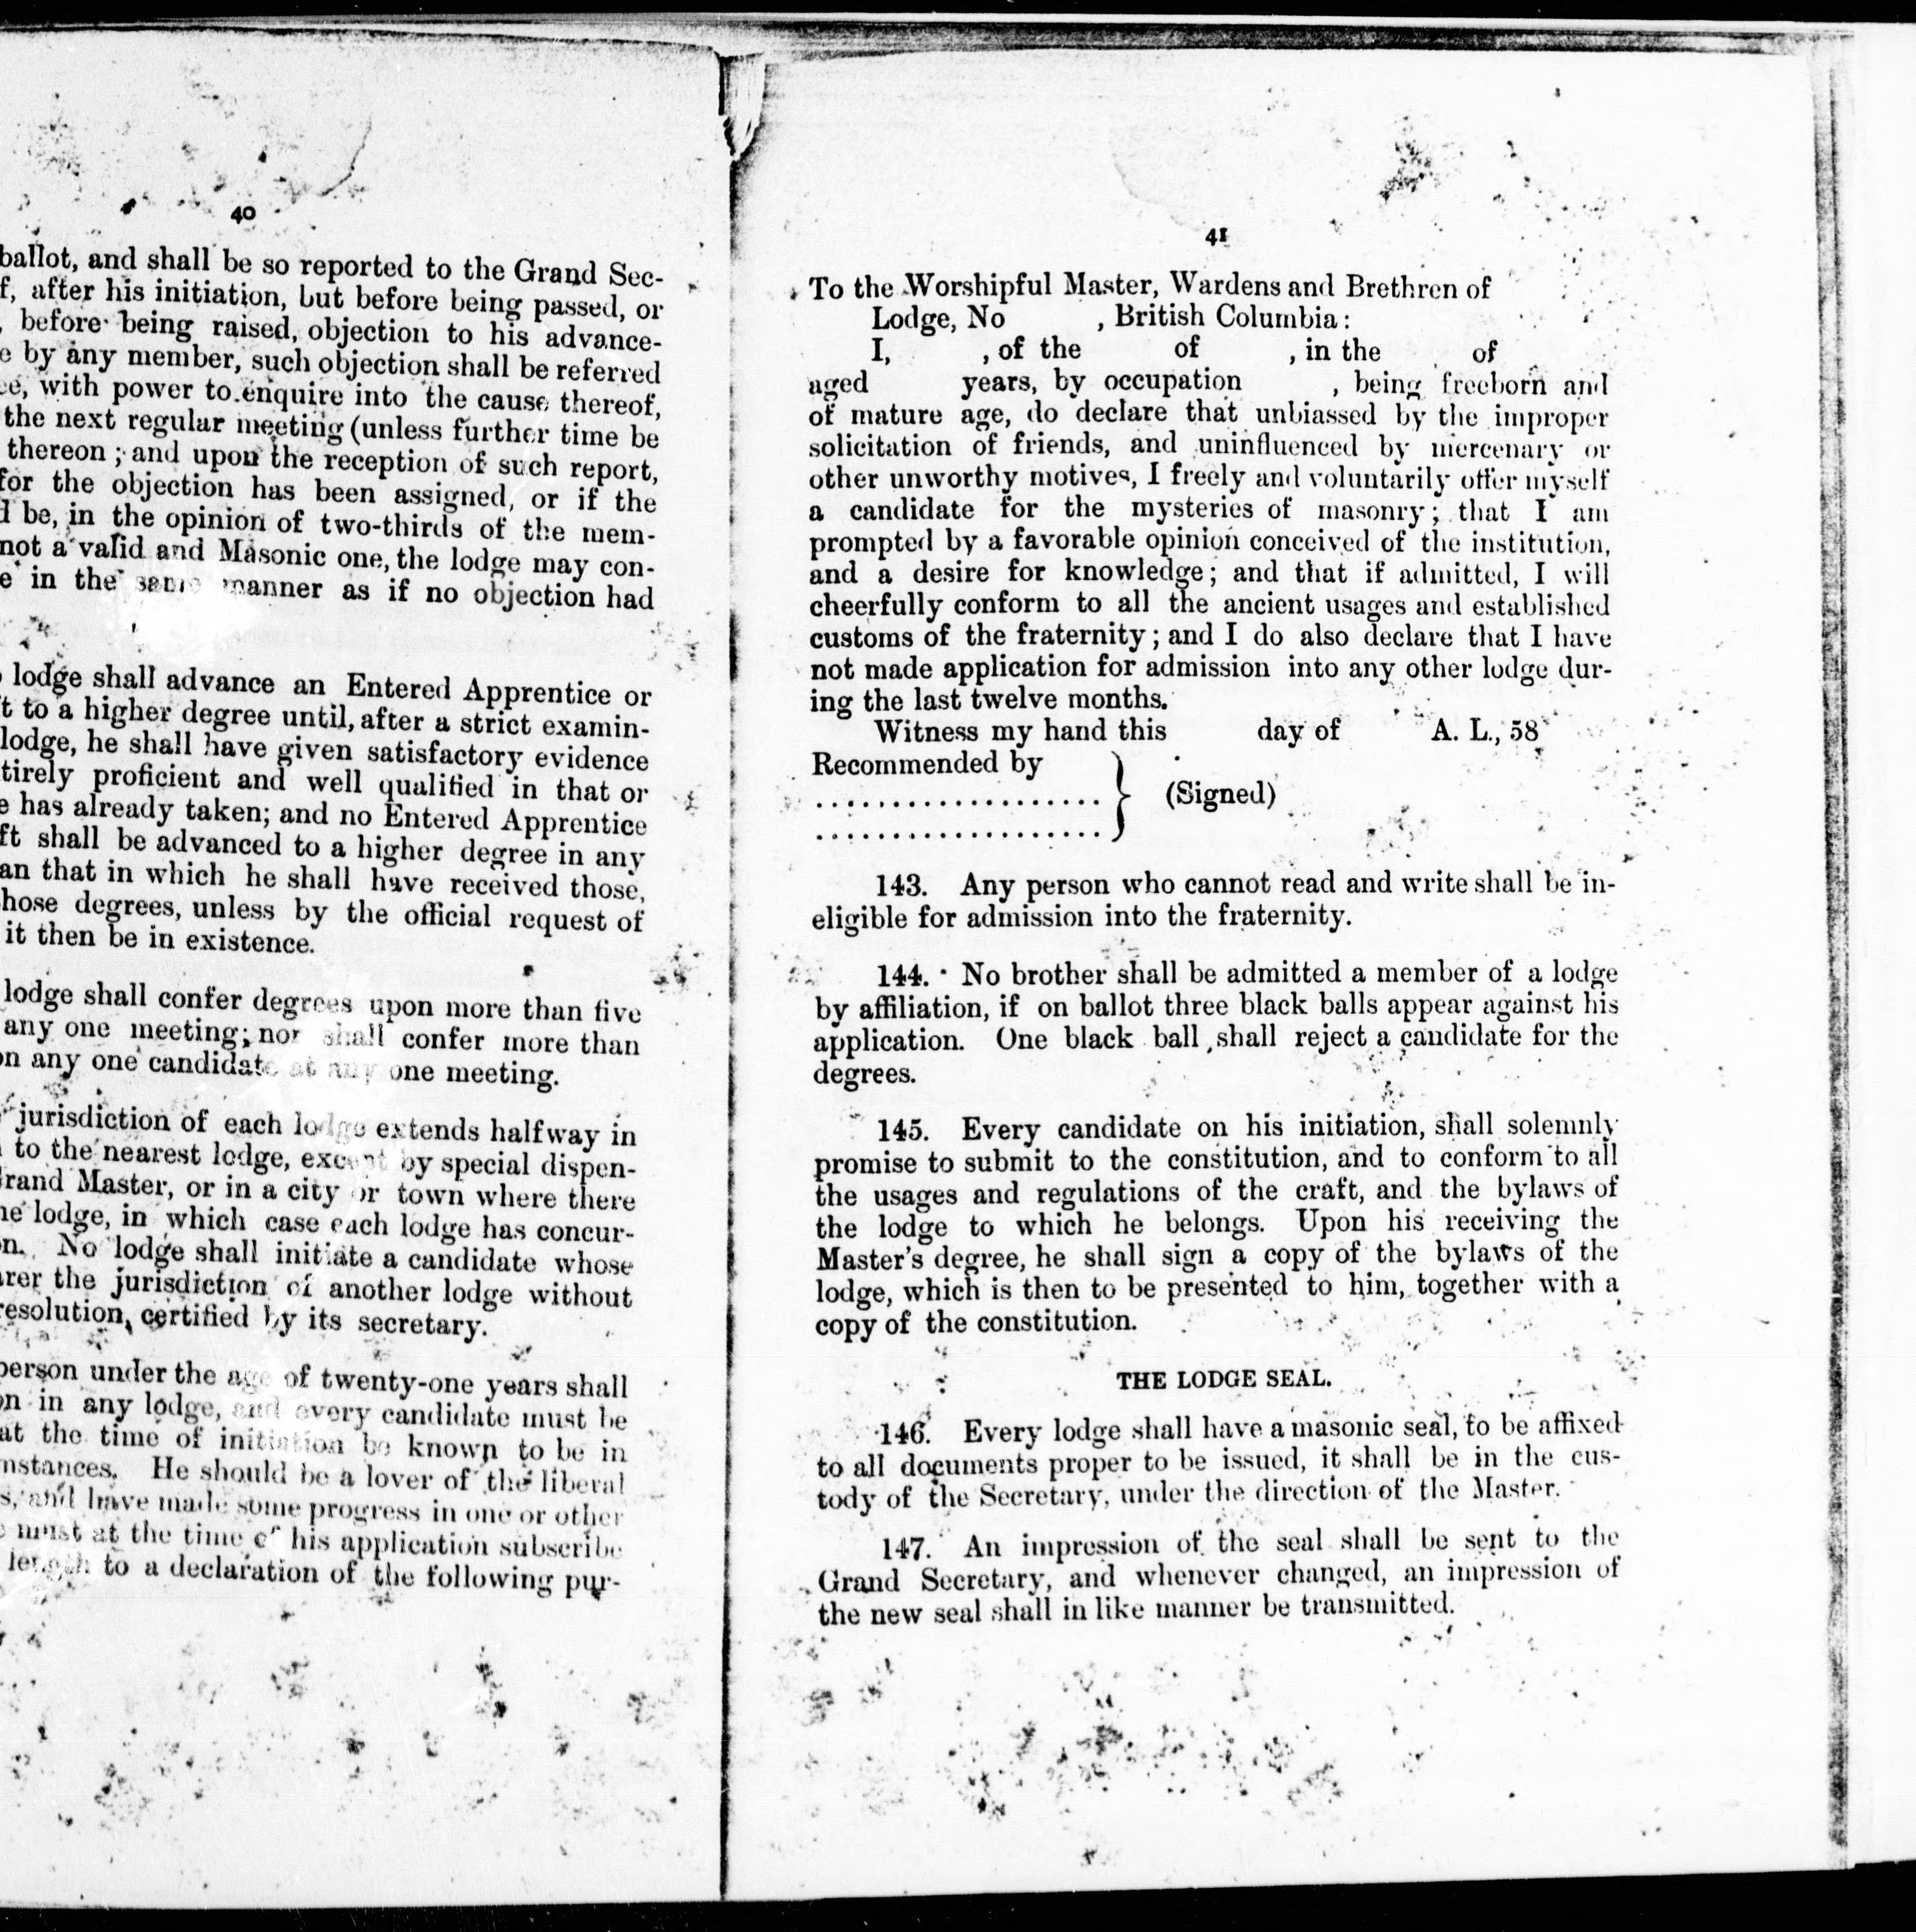 40
ballot, and shall be so reported to the Grand Sec-
f, after his initiation, but before being passed, or
, before being raised, objection to his advance-
e by any member, such objection shall be referred
ee, with power to enquire into the cause thereof,
the next regular meeting (unless further time be
thereon; and upon the reception of such report,
for the objection has been assigned, or if the
d be, in the opinion of two-thirds of the mem-
not a valid and Masonic one, the lodge may con-
e in the same manner as if no objection had
lodge shall advance an Entered Apprentice or
t to a higher degree until, after a strict examin-
lodge, he shall have given satisfactory evidence
tirely proficient and well qualified in that or
e has already taken; and no Entered Apprentice
ft shall be advanced to a higher degree in any
an that in which he shall have received those,
hose degrees, unless by the official request of
it then be in existence.
lodge shall confer degrees upon more than five
any one meeting; nor shall confer more than
on any one candidate at any one meeting.
jurisdiction of each lodge extends halfway in
to the nearest lodge, except by special dispen-
Grand Master, or in a city or town where there
ne lodge, in which case each lodge has concur-
n. No lodge shall initiate a candidate whose
arer the jurisdiction of another lodge without
resolution, certified by its secretary.
person under the age of twenty-one years shall
on in any lodge, and every candidate must be
at the time of initiation be known to be in
mstances. He should be a lover of the liberal
s, and have made some progress in one or other
must at the time of his application subscribe
length to a declaration of the following pur-
41
To the Worshipful Master, Wardens and Brethren of
Lodge, No , British Columbia:
I, , of the of , in the of
aged years, by occupation , being freeborn and
of mature age, do declare that unbiassed by the improper
solicitation of friends, and uninfluenced by mercenary or
other unworthy motives, I freely and voluntarily offer myself
a candidate for the mysteries of masonry; that I am
prompted by a favorable opinion conceived of the institution,
and a desire for knowledge; and that if admitted, I will
cheerfully conform to all the ancient usages and established
customs of the fraternity; and I do also declare that I have
not made application for admission into any other lodge dur-
ing the last twelve months.
Witness my hand this day of A. L., 58
Recommended by
(Signed)
...................
...................
143. Any person who cannot read and write shall be in-
eligible for admission into the fraternity.
144. No brother shall be admitted a member of a lodge
by affiliation, if on ballot three black balls appear against his
application. One black ball shall reject a candidate for the
degrees.
145. Every candidate on his initiation, shall solemnly
promise to submit to the constitution, and to conform to all
the usages and regulations of the craft, and the bylaws of
the lodge to which he belongs. Upon his receiving the
Master's degree, he shall sign a copy of the bylaws of the
lodge, which is then to be presented to him, together with a
copy of the constitution.
THE LODGE SEAL.
146. Every lodge shall have a masonic seal, to be affixed
to all documents proper to be issued, it shall be in the cus-
tody of the Secretary, under the direction of the Master.
147. An impression of the seal shall be sent to the
Grand Secretary, and whenever changed, an impression of
the new seal shall in like manner be transmitted.